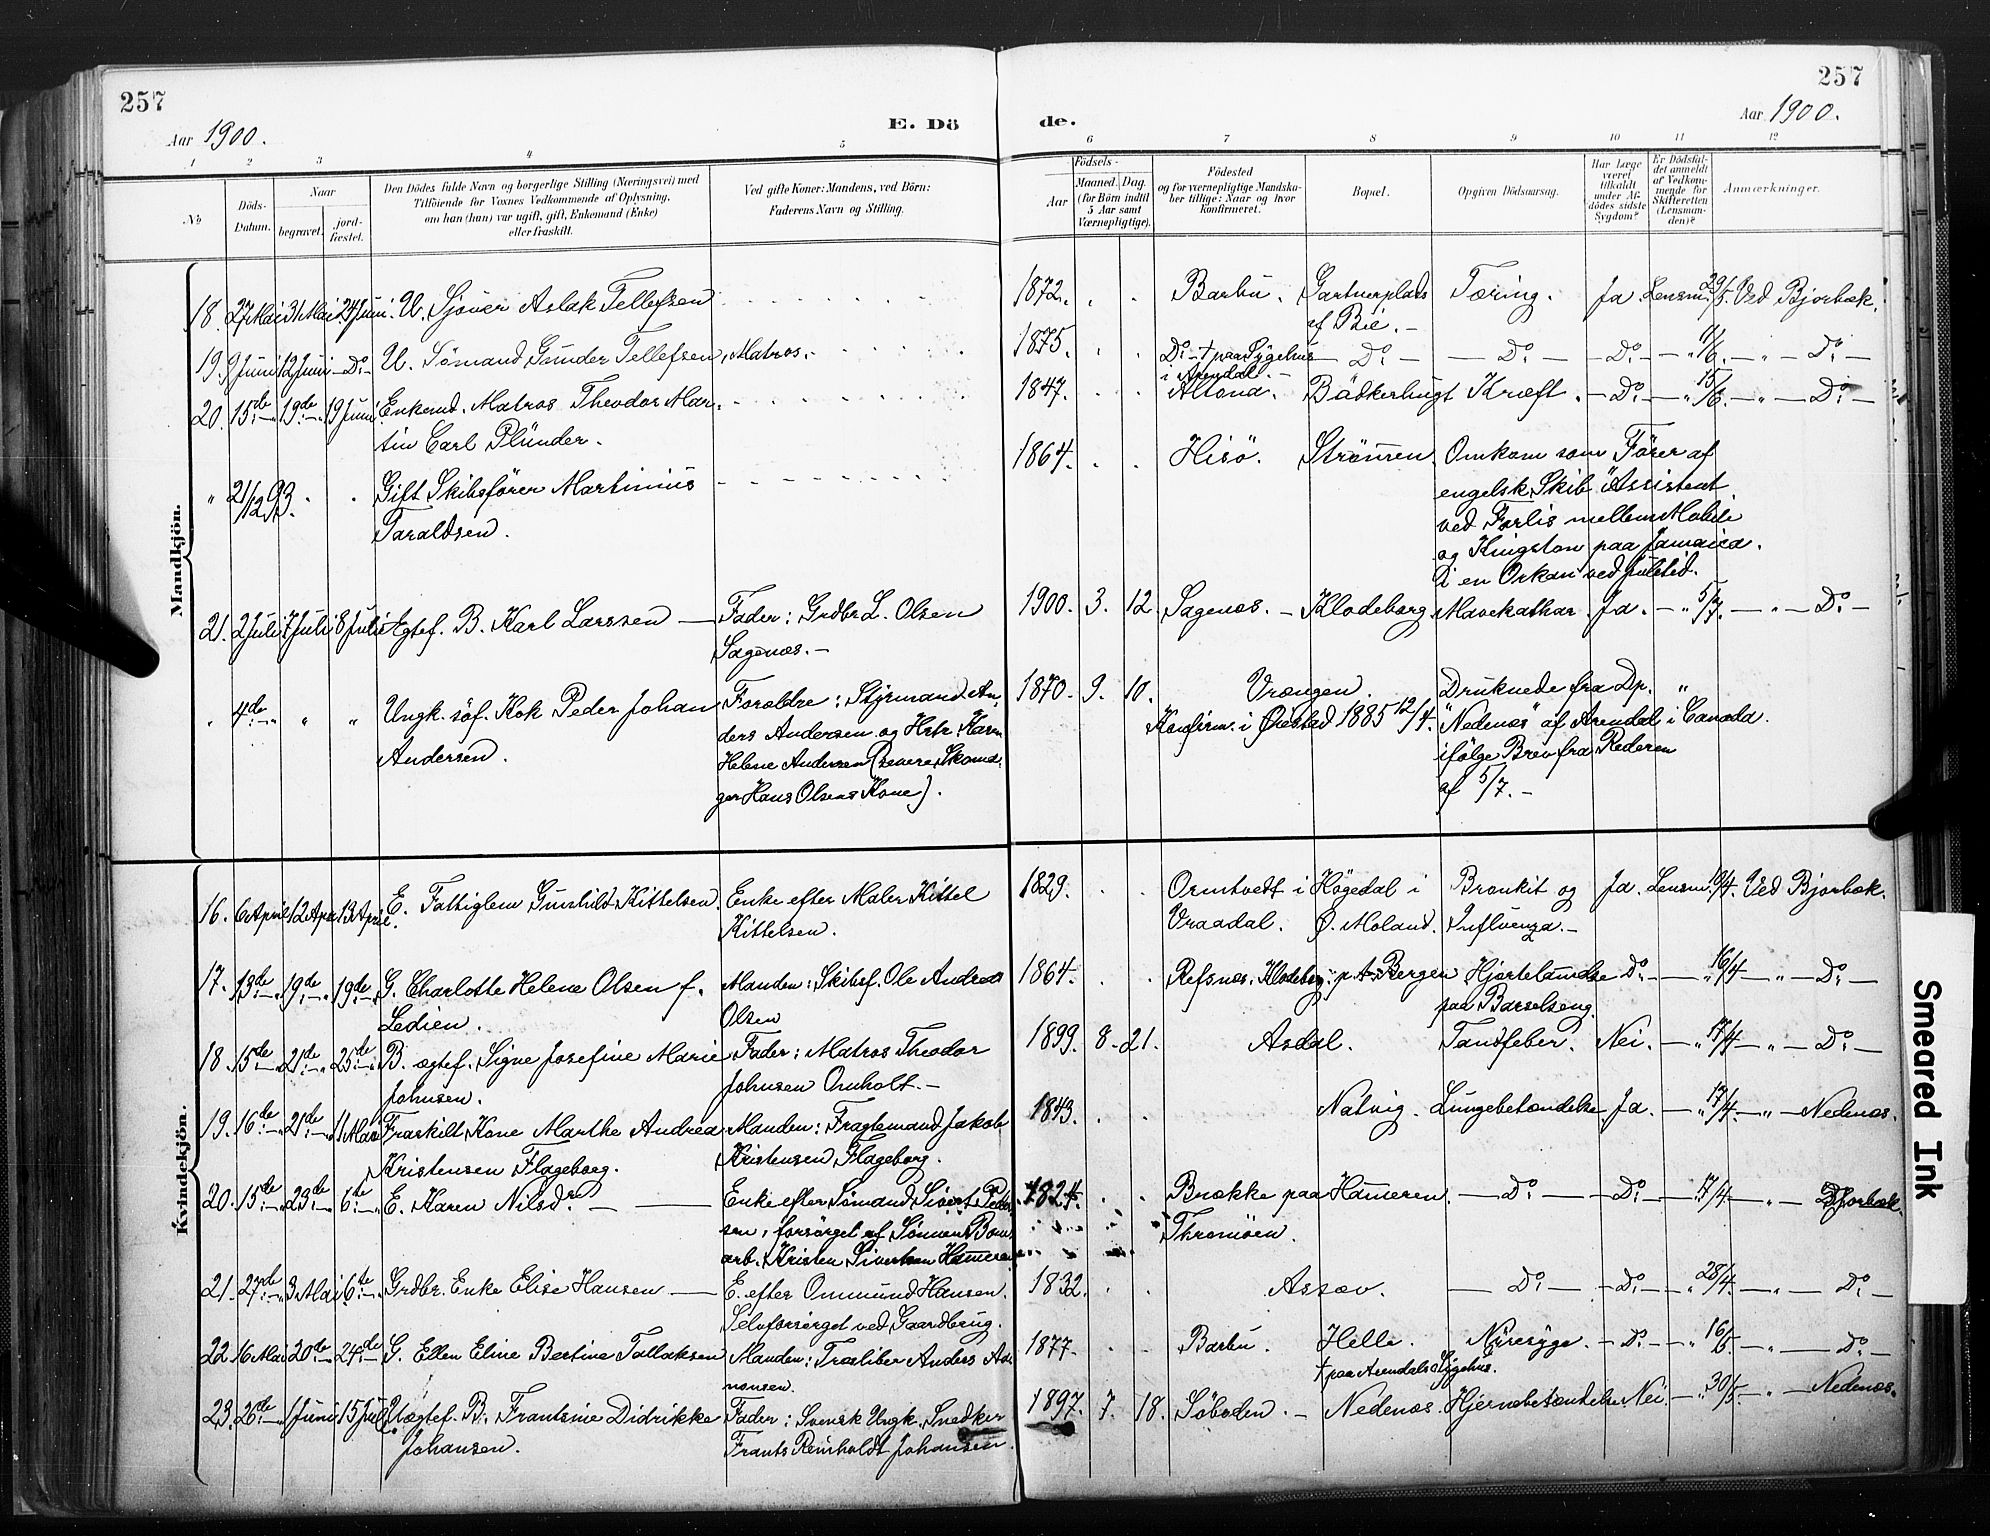 257
Aar 1900.
E. Dö
de.
257
Aar 1900.
1 2 3 4 5 6 7 8 9 10 11 12
No
Döds-Datum.
Naar
begravet.
jord-fæstet.
Den Dödes fulde Navn og borgerlige Stilling (Næringsvei) med
Tilföiende for Voxnes Vedkommende af Oplysning,
om han (hun) var ugift, gift, Enkemand (Enke)
eller fraskilt.
Ved gifte Koner: Mandens, ved Börn:
Faderens Navn og Stilling.
Födsels-
Aar
Maaned. Dag.
(for Börn indtil
5 Aar samt
Værnepligtige).
Födested
og for værnepligtige Mandska-
ber tillige: Naar og hvor
konfirmeret.
Bopæl.
Opgiven Dödsaarsag.
Har Læge
været
tilkaldt
under Af-
dödes sidste
Sygdom?
Er Dödsfal-
det anmeldt
af Vedkom-
mende for
Skifteretten
(Lensman-
den)?
Anmærkninger.
Mandkjön.
18. 27 Mai 31 Mai 24 Juni. U. Sjöuer Aslak Tellefsen 1872. Barbu. Gartnerplads Tæring. Ja Lensm. 29/5. Ved Bjorbæk.
af Bie. -
19. 9 Juni 12 Juni - Do - U. Sömand Gunder Tellefsen, Matros. 1875. Do - † paa Sygehus - Do - - Do - - Do - " 11/6. - " - Do -
i Arendal. -
20. 15de 19de 19 Juni. Enkemd. Matros Theodor Mar- 1847. Altona. Bödkerhugt Kræft. - Do - " 15/6. - " - Do -
tin Carl Plünder.
" 21/12 93. Gift Skibsförer Martinius 1864. Hisö. Strömmen. Omkom som Förer af
Taraldsen.
engelsk Skib "Assistent
ved Forlis mellem Mobile
og Kingston paa Jamaica.
I en Orkan ved Juletid.
21. 2 Juli 7 Juli 8 Juli Ægtef. B. Karl Larssen - Fader: Grdbr L. Olsen 1900. 3. 12. Sagenæs. - Klodeborg Mavekathar. Ja. - " 5/7. - " - Do -
Sagenæs. -
" 4de " " Ungk. söf. Kok Peder Johan Forældre: Styrmand An- 1870. 9. 10. Vrængen. Druknede fra Dp. "
Andersen. ders Andersen og Hstr. Karen Konfirm. i Öiestad 1885 12/4. "Nedenæs" af Arendal i Canada.
Helene Andersen (senere Skoma- ifölge Brev fra Rederen
ger Hans Olsens Kone). af 5/7. -
Kvindekjön.
16. 6 April 12 April 13 April. E. Fattiglem Gunhild Kittelsen. Enke efter Maler Kittel 1829. Ormtvedt i Högedal i Bronkit og Ja. Lensm. 10/4. Ved Bjorbæk.
Kittelsen. Vraadal. Ö. Moland. Influenza. -
17. 13de 19de 19de G. Charlotte Helene Olsen f. Manden: Skibsf. Ole Andreas 1864. Refsnæs, Klodeborg. p. t. Bergen Hjertelamdse Do - " 16/4 - " - Do -
Ledien. Olsen paa Barselseng.
18. 15de 21de 25de B. ægtef. Signe Josefine Marie Fader: Matros Theodor 1899. 8. 21. Asdal. Tandfeber. Nei. - " 17/4 - " - Do -
Johnsen. Johnsen Omholt. -
19. 16de 21de 11 Mai Fraskilt Kone Marthe Andrea Manden: Fragtemand Jakob 1843. Natvig. Lungebetændelse Ja. - " 17/4 - " - Nedenæs.
Kristensen Flageborg. Kristensen Flageborg.
20. 15de 23de 6te E. Karen Nilsdr. - Enke efter Sömand Sivert Peder- 1824. Brække paa Hammeren. - Do - - Do - " 17/4 - " - Bjorbæk.
sen, forsörget af Sönnen Bom- Thromöen.
arb. Kristen Sivertsen Hammeren
21. 27de 3 Mai 6te Grdbr. Enke Elise Hansen - E. efter Onmund Hansen. 1832. Assæv. - Do - - Do - " 28/4. - " - Do -
Selvforsörget ved Gaardbrug.
22. 16 Mai 20de 24de G. Ellen Eline Bertine Tallaksen Manden: Træliber Anders 1877. Barbu. Helle. Nyresyge. - Do - " 16/5 - " - Do -
† paa Arendals Sygehus.
23. 26de 1 Juni 15 Juli. Uægtef. B. Frantsine Didrikke Fader: Svensk Ungk. Snedker 1897. 7. 18. Söboden. - Nedenæs. Hjernebetændelse Nei - " 30/5. - " - Nedenæs.
Johansen. Frants Reinholdt Johansen.
Smeared Ink